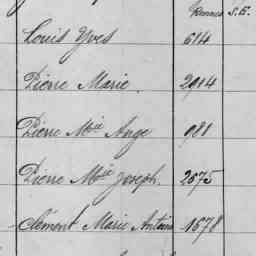 Rennes S.E.
Louis Yves 614
Pierre Marie. 2914
Pierre Mie Ange 988
Pierre Mie Joseph. 2075
Clément Marie Antoine 1578